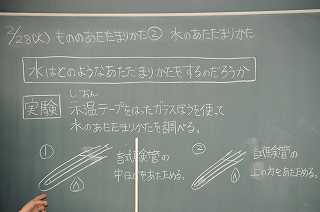 2/28(火) もののあたたまりかた② 水のあたたまりかた
水はどのようなあたたまりかたをするのだろうか
実験 示温テープをはったガラスぼうを使って
しおん
水のあたたまりかたを調べる。
① 試験管の
中ほどをあたためる。
② 試験管の
上の方をあたためる。